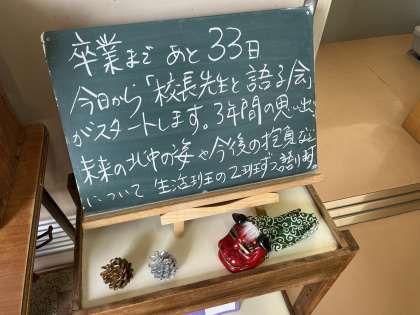 卒業まで あと 33日
今日から「校長先生と語る会」
がスタートします。3年間の思い出、
未来の北中の姿や今後の抱負など
について 生活班の2班ずつ語ります